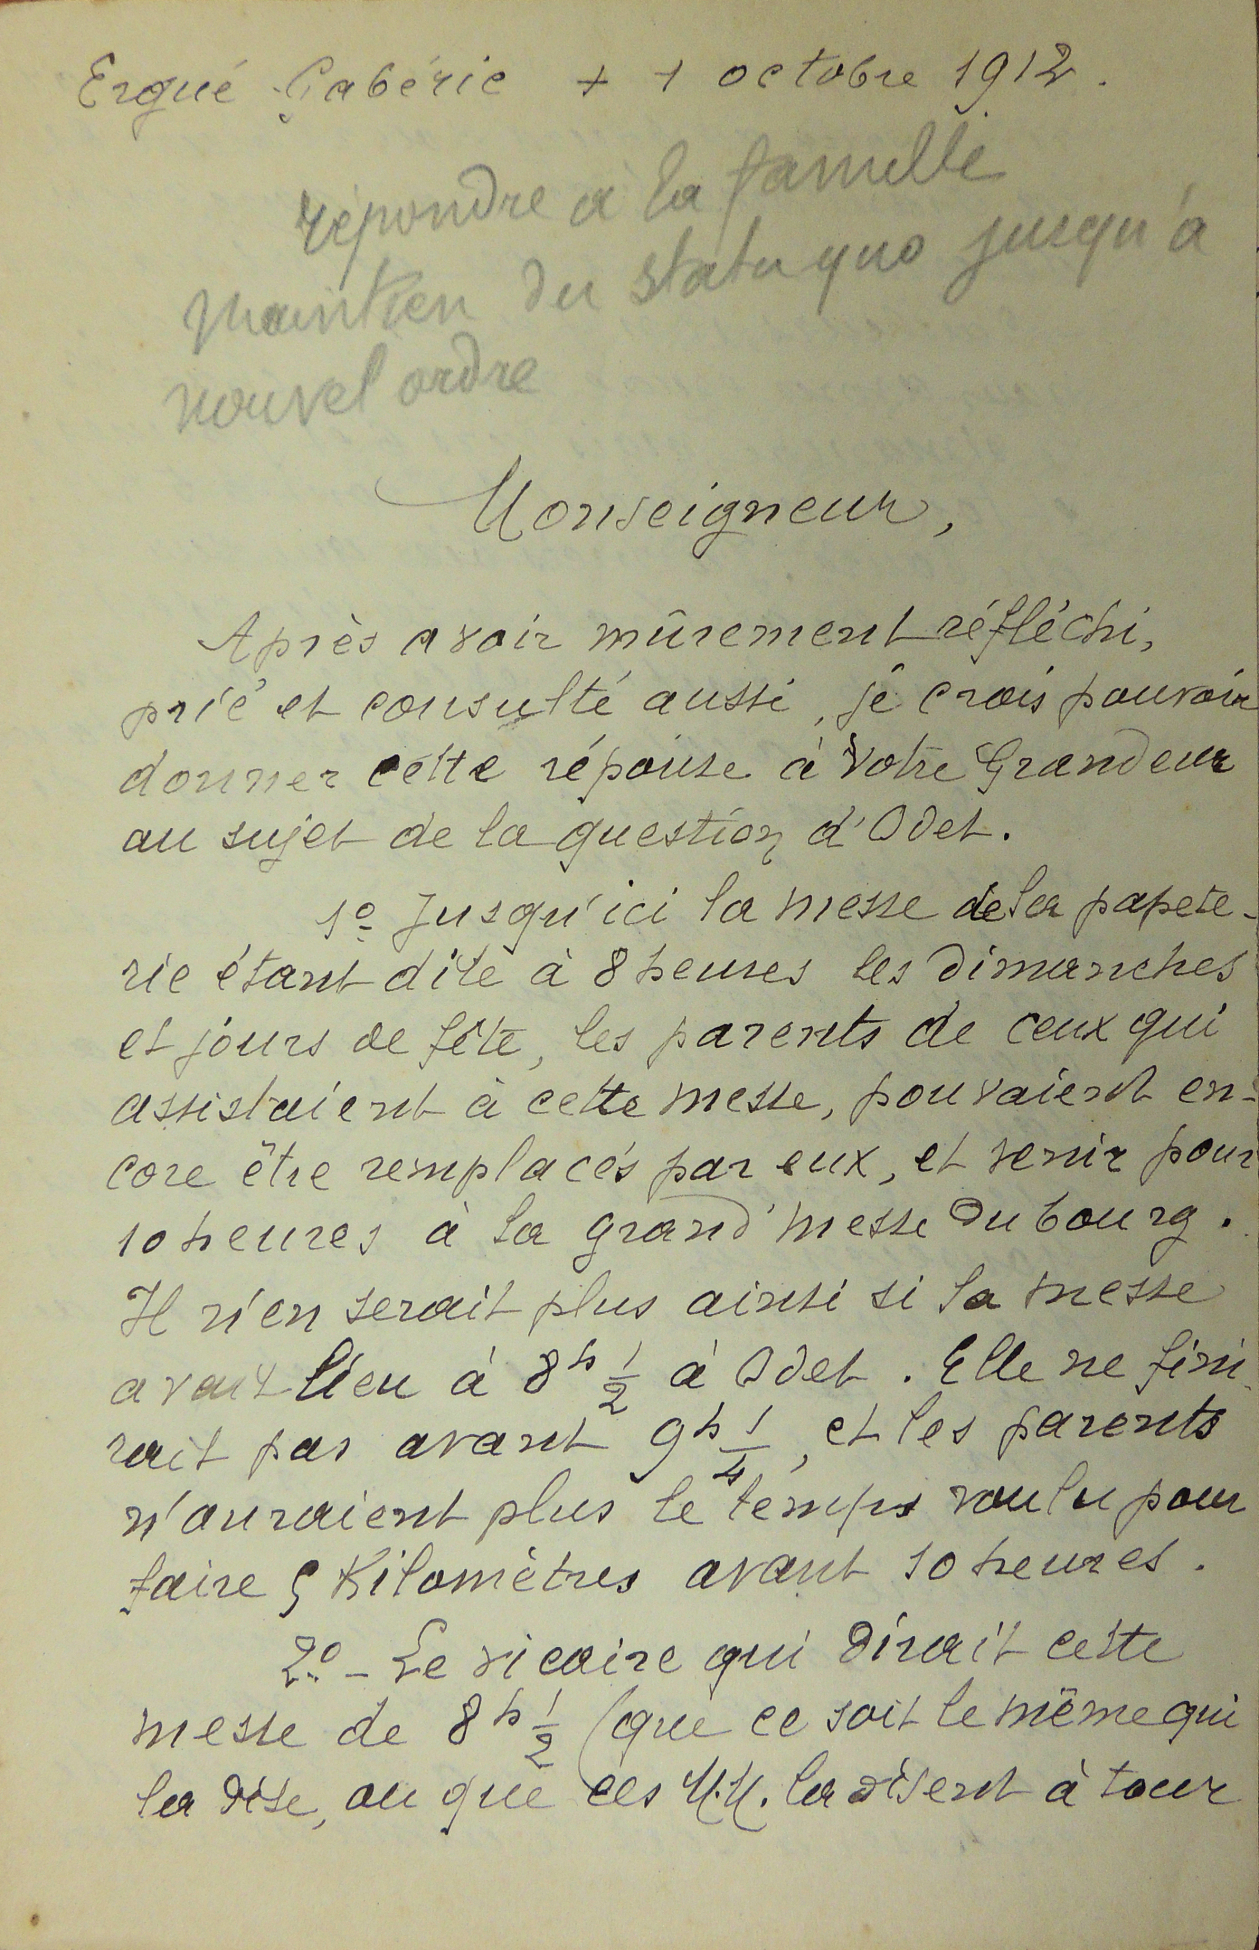 Ergué Gabéric + 1 octobre 1912.
répondre à la famille
maintien du statu quo jusqu'à
nouvel ordre
Monseigneur,
Après avoir mûrement réfléchi,
prié et consulté aussi, je crois pouvoir
donner cette réponse à Votre Grandeur
au sujet de la question d'Odet.
1º Jusqu'ici la messe de la papete-
rie étant dite à 8 heures les dimanches
et jours de fête, les parents de ceux qui
assistaient à cette messe, pouvaient en-
core être remplacés par eux, et venir pour
10 heures à la grand'messe du bourg.
Il n'en serait plus ainsi si la messe
avait lieu à 8h 1/2 à Odet. Elle ne fini-
rait pas avant 9h 1/4, et les parents
n'auraient plus le temps voulu pour
faire 5 kilomètres avant 10 heures.
2º - Le vicaire qui dirait cette
messe de 8h 1/2 (que ce soit le même qui
la dise, ou que ces M.M. la disent à tour